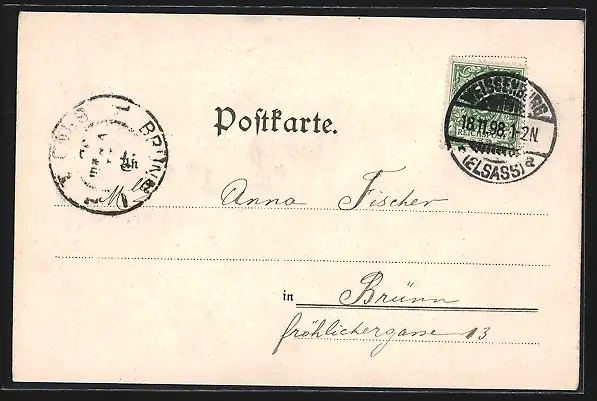 Postkarte.
WEISSENBURG
18.11.98.1-2N.
(ELSASS) a
BRÜNN
Mlle Anna Fischer
in Brünn
fröhlichergasse 13